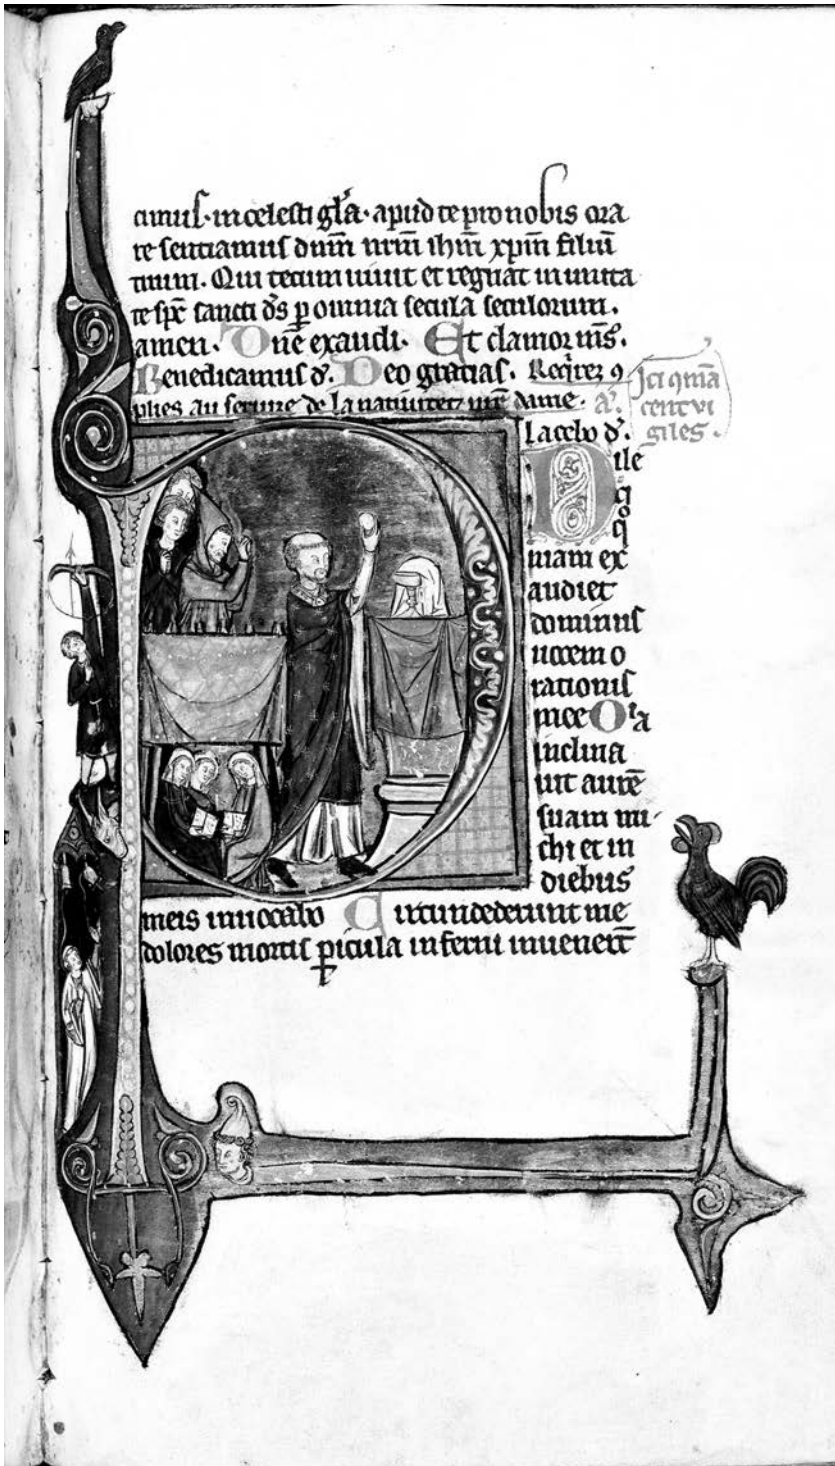 amus. in celesti gl̄a. apud te pro nobis ora
re sentiamus dn̄m nr̄m ih̄m xp̄m filiū
tuum. Qui tecum uiuit et regnat in unita
te sp̄c sancti d̄s p̱ omnia secula seculorum.
amen. Dn̄e exaudi. Et clamor m̄s.
Benedicamus d̄. Deo gratias. Reqͥrez 9
plies au seture de la natiuitez nr̄e dame. a.
Ici 9mā
cent vi
giles.
lacebo d̄.
Dile
xi
qͦ
niam ex
audiet
dominus
uocem o
rationis
mee Qͥa
inclina
uit aurē
suam mi
chi et in
diebus
meis inuocabo Circundederunt me
dolores mortis p̱icula inferni inuener̄t